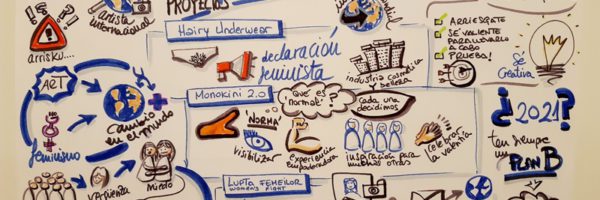 artista
internacional
PROYECTOS
arrisku...
ART
feminismo
cambio
en el mundo
vergüenza
miedo
Hairy Underwear
declaración
feminista
industria cosmética
y belleza
Monokini 2.0
¿Qué es
"normal"?
cada una
decidimos
"NORMA"
visibilizar
experiencia
empoderadora
inspiración para
muchas otras
celebrar
la valentía
LUPTA FEMEILOR
WOMEN'S FIGHT
ARRIESGATE
SÉ VALIENTE
PARA LLEVARLO
A CABO
PRUEBA!
Sé
Creativa
¿2021?
ten siempre
un
PLAN B